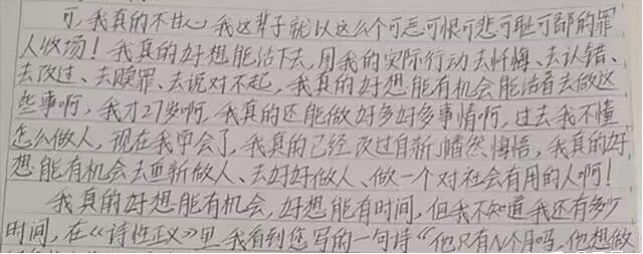 可,我真的不甘心我这辈子就以这么个可恶可恨可悲可耻可鄙的罪
人收场！我真的好想能活下去,用我的实际行动去忏悔、去认错、
去改过、去赎罪、去说对不起,我真的好想能有机会能活着去做这
些事啊,我才27岁啊,我真的还能做好多好多事情啊,过去我不懂
怎么做人,现在我学会了,我真的已经改过自新、幡然悔悟,我真的好
想能有机会去重新做人、去好好做人、做一个对社会有用的人啊！
我真的好想能有机会,好想能有时间,但我不知道我还有多少
时间,在《诗性正义》里,我看到您写的一句诗“他只有N个月吗,他想做